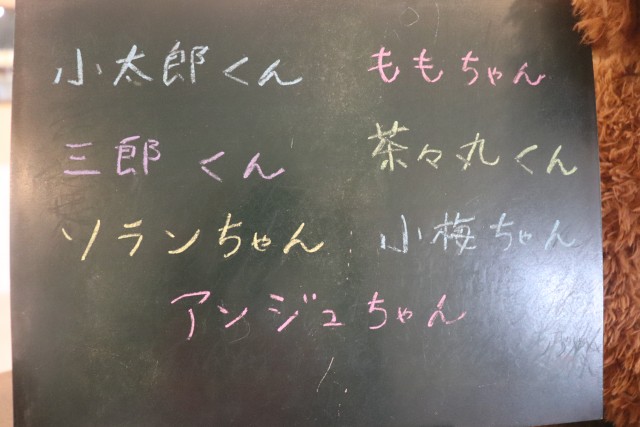 小太郎くん ももちゃん
三郎くん 茶々丸くん
ソランちゃん 小梅ちゃん
アンジュちゃん